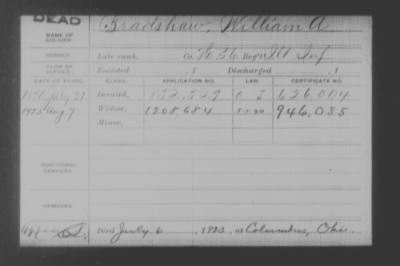 DEAD
NAME OF SOLDIER: Bradshaw, William A.
SERVICE: Late rank, Co. H. 36 Reg't Ill Inf
TERM OF SERVICE: Enlisted , 1 Discharged , 1
DATE OF FILING. CLASS. APPLICATION NO. LAW. CERTIFICATE NO.
July 21 Invalid, 626,004
1925 Aug 7 Widow, 1208684 946,035
Minor,
ADDITIONAL SERVICES:
REMARKS:
Died July 6, 1925, at Columbus, Ohio